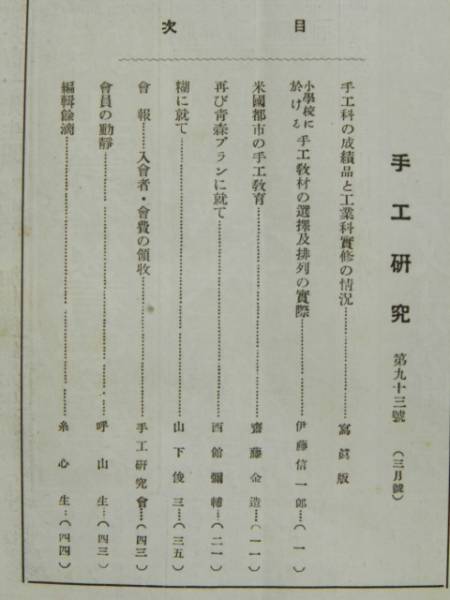 手工研究 第九十三號 (三月號)
目次
手工科の成績品と工業科實修の情況……寫眞版
小學校に於ける手工教材の選擇及排列の實際……伊藤信一郎…(一)
米國都市の手工教育……齋藤金造…(一一)
再び靑森プランに就て……西館彌輔…(二一)
糊に就て……山下俊三…(三五)
會報……入會者・會費の領收……手工硏究會…(四三)
會員の動靜……呼山生…(四三)
編輯餘滴……糸心生…(四四)